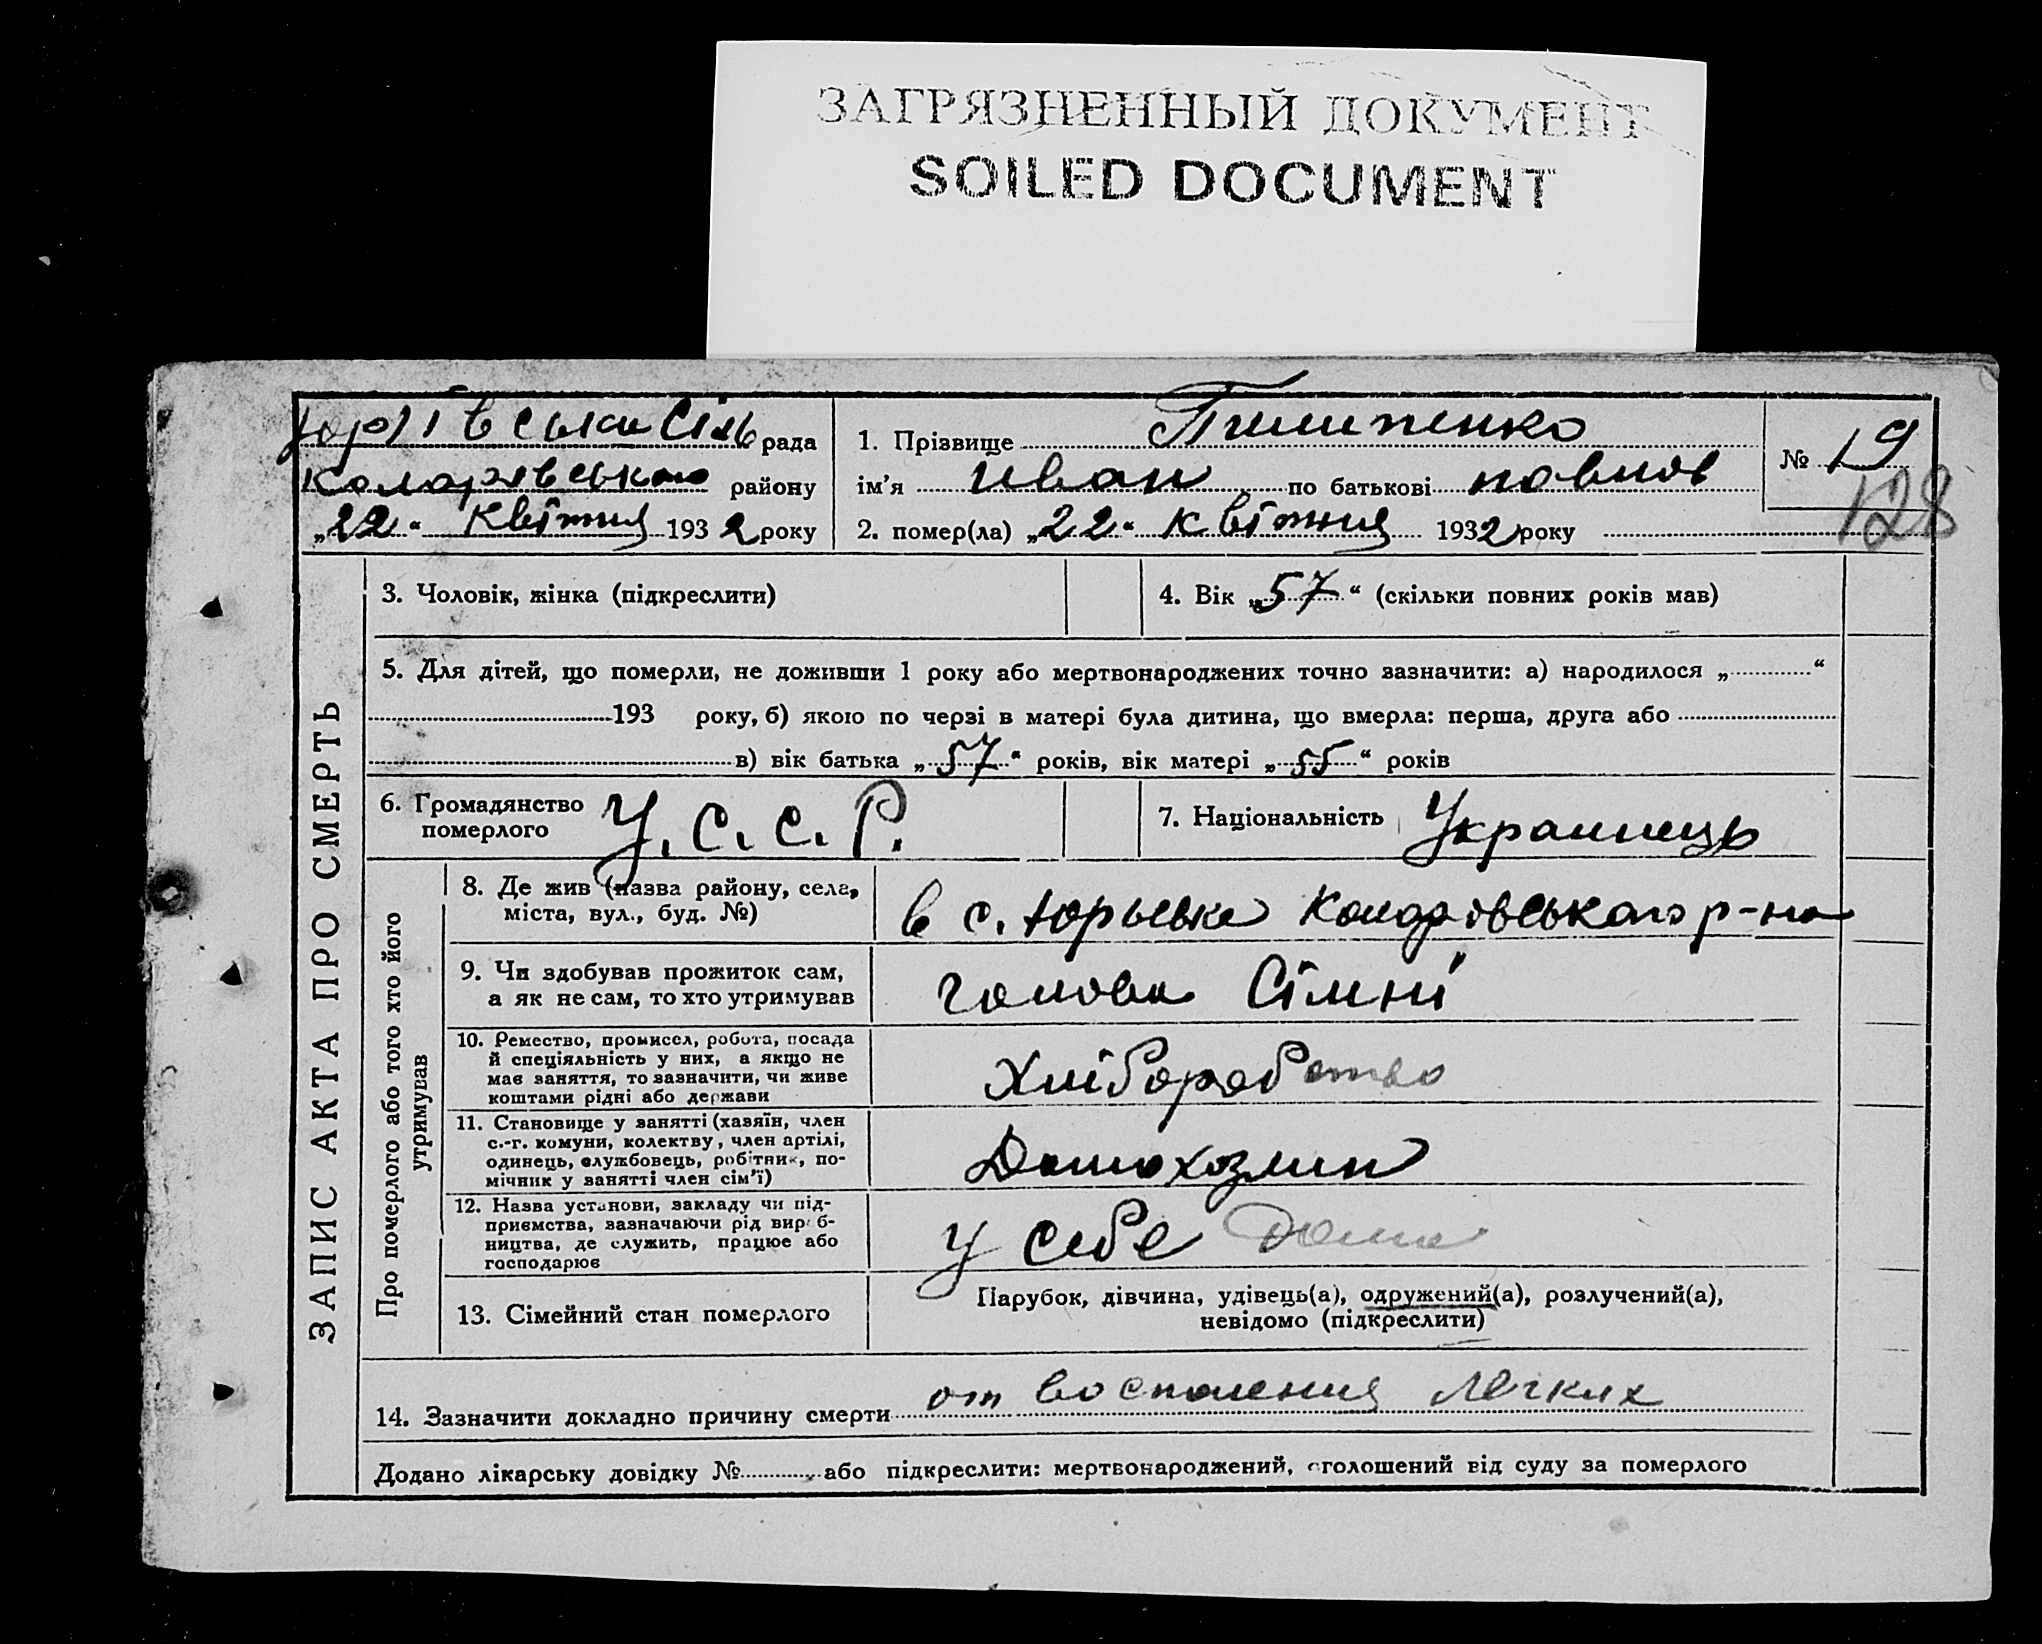 ЗАГРЯЗНЕННЫЙ ДОКУМЕНТ
SOILED DOCUMENT
Юріївська Сіль рада
Коларівського району
„22“ Квітня 1932 року
1. Прізвище Пилипенко
ім’я Иван по батькові павлов
2. помер(ла) „22“ Квітня 1932 року
№ 19
128
ЗАПИС АКТА ПРО СМЕРТЬ
3. Чоловік, жінка (підкреслити)
4. Вік „57“ (скільки повних років мав)
5. Для дітей, що померли, не доживши 1 року або мертвонароджених точно зазначити: а) народилося „ “
193 року, б) якою по черзі в матері була дитина, що вмерла: перша, друга або
в) вік батька „57“ років, вік матері „55“ років
6. Громадянство
померлого У.С.С.Р.
7. Національність Украинець
Про померлого або того хто його
утримував
8. Де жив (назва району, села,
міста, вул., буд. №)
в с. Юрьевке Коларовського р-на
9. Чи здобував прожиток сам,
а як не сам, то хто утримував
голова Сімні
10. Ремество, промисел, робота, посада
й спеціяльність у них, а якщо не
має заняття, то зазначити, чи живе
коштами рідні або держави
Хлібороботво
11. Становище у занятті (хазяїн, член
с.-г. комуни, колектву, член артілі,
одинець, службовець, робітник, по-
мічник у занятті член сім’ї)
Домохозяин
12. Назва установи, закладу чи під-
приємства, зазначаючи рід вироб-
ництва, де служить, працює або
господарює
У себе дома
13. Сімейний стан померлого
Парубок, дівчина, удівець(а), одружений(а), розлучений(а),
невідомо (підкреслити)
14. Зазначити докладно причину смерти от воспаления Легких
Додано лікарську довідку № або підкреслити: мертвонароджений, оголошений від суду за померлого